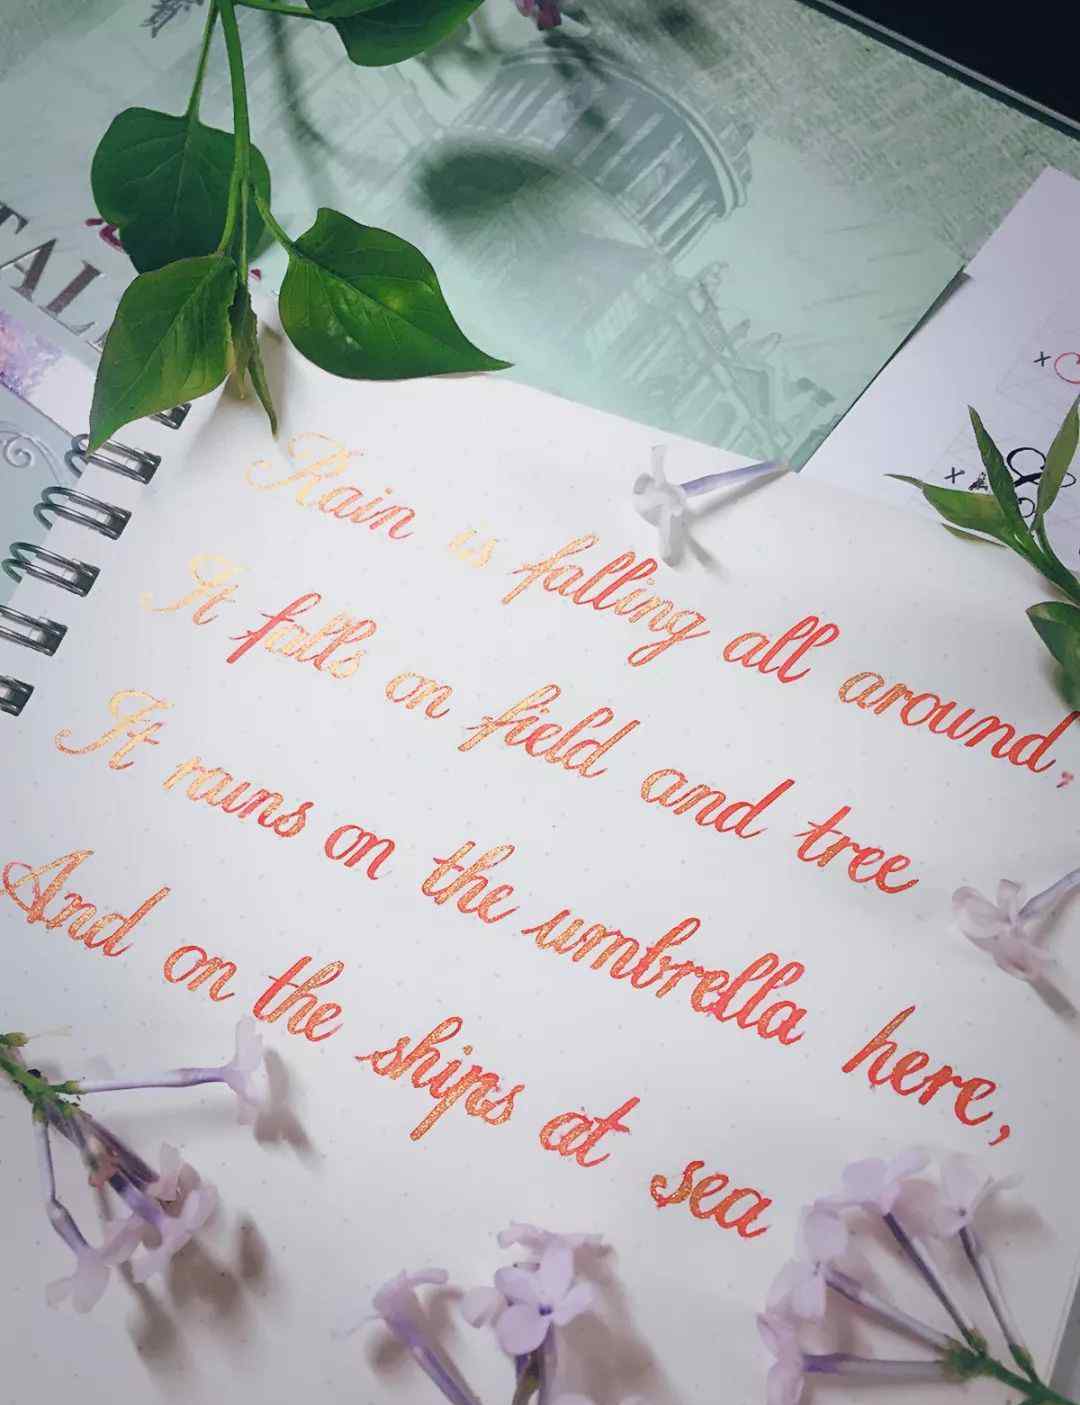 TAL
Rain is falling all around,
It falls on field and tree
It rains on the umbrella here,
And on the ships at sea